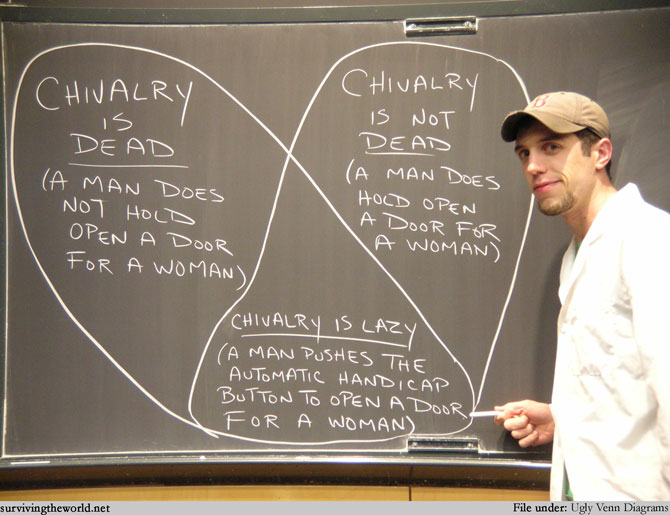 CHIVALRY
IS
DEAD
(A MAN DOES
NOT HOLD
OPEN A DOOR
FOR A WOMAN)
CHIVALRY
IS NOT
DEAD
(A MAN DOES
HOLD OPEN
A DOOR FOR
A WOMAN)
CHIVALRY IS LAZY
(A MAN PUSHES THE
AUTOMATIC HANDICAP
BUTTON TO OPEN A DOOR
FOR A WOMAN)
survivingtheworld.net
File under: Ugly Venn Diagrams